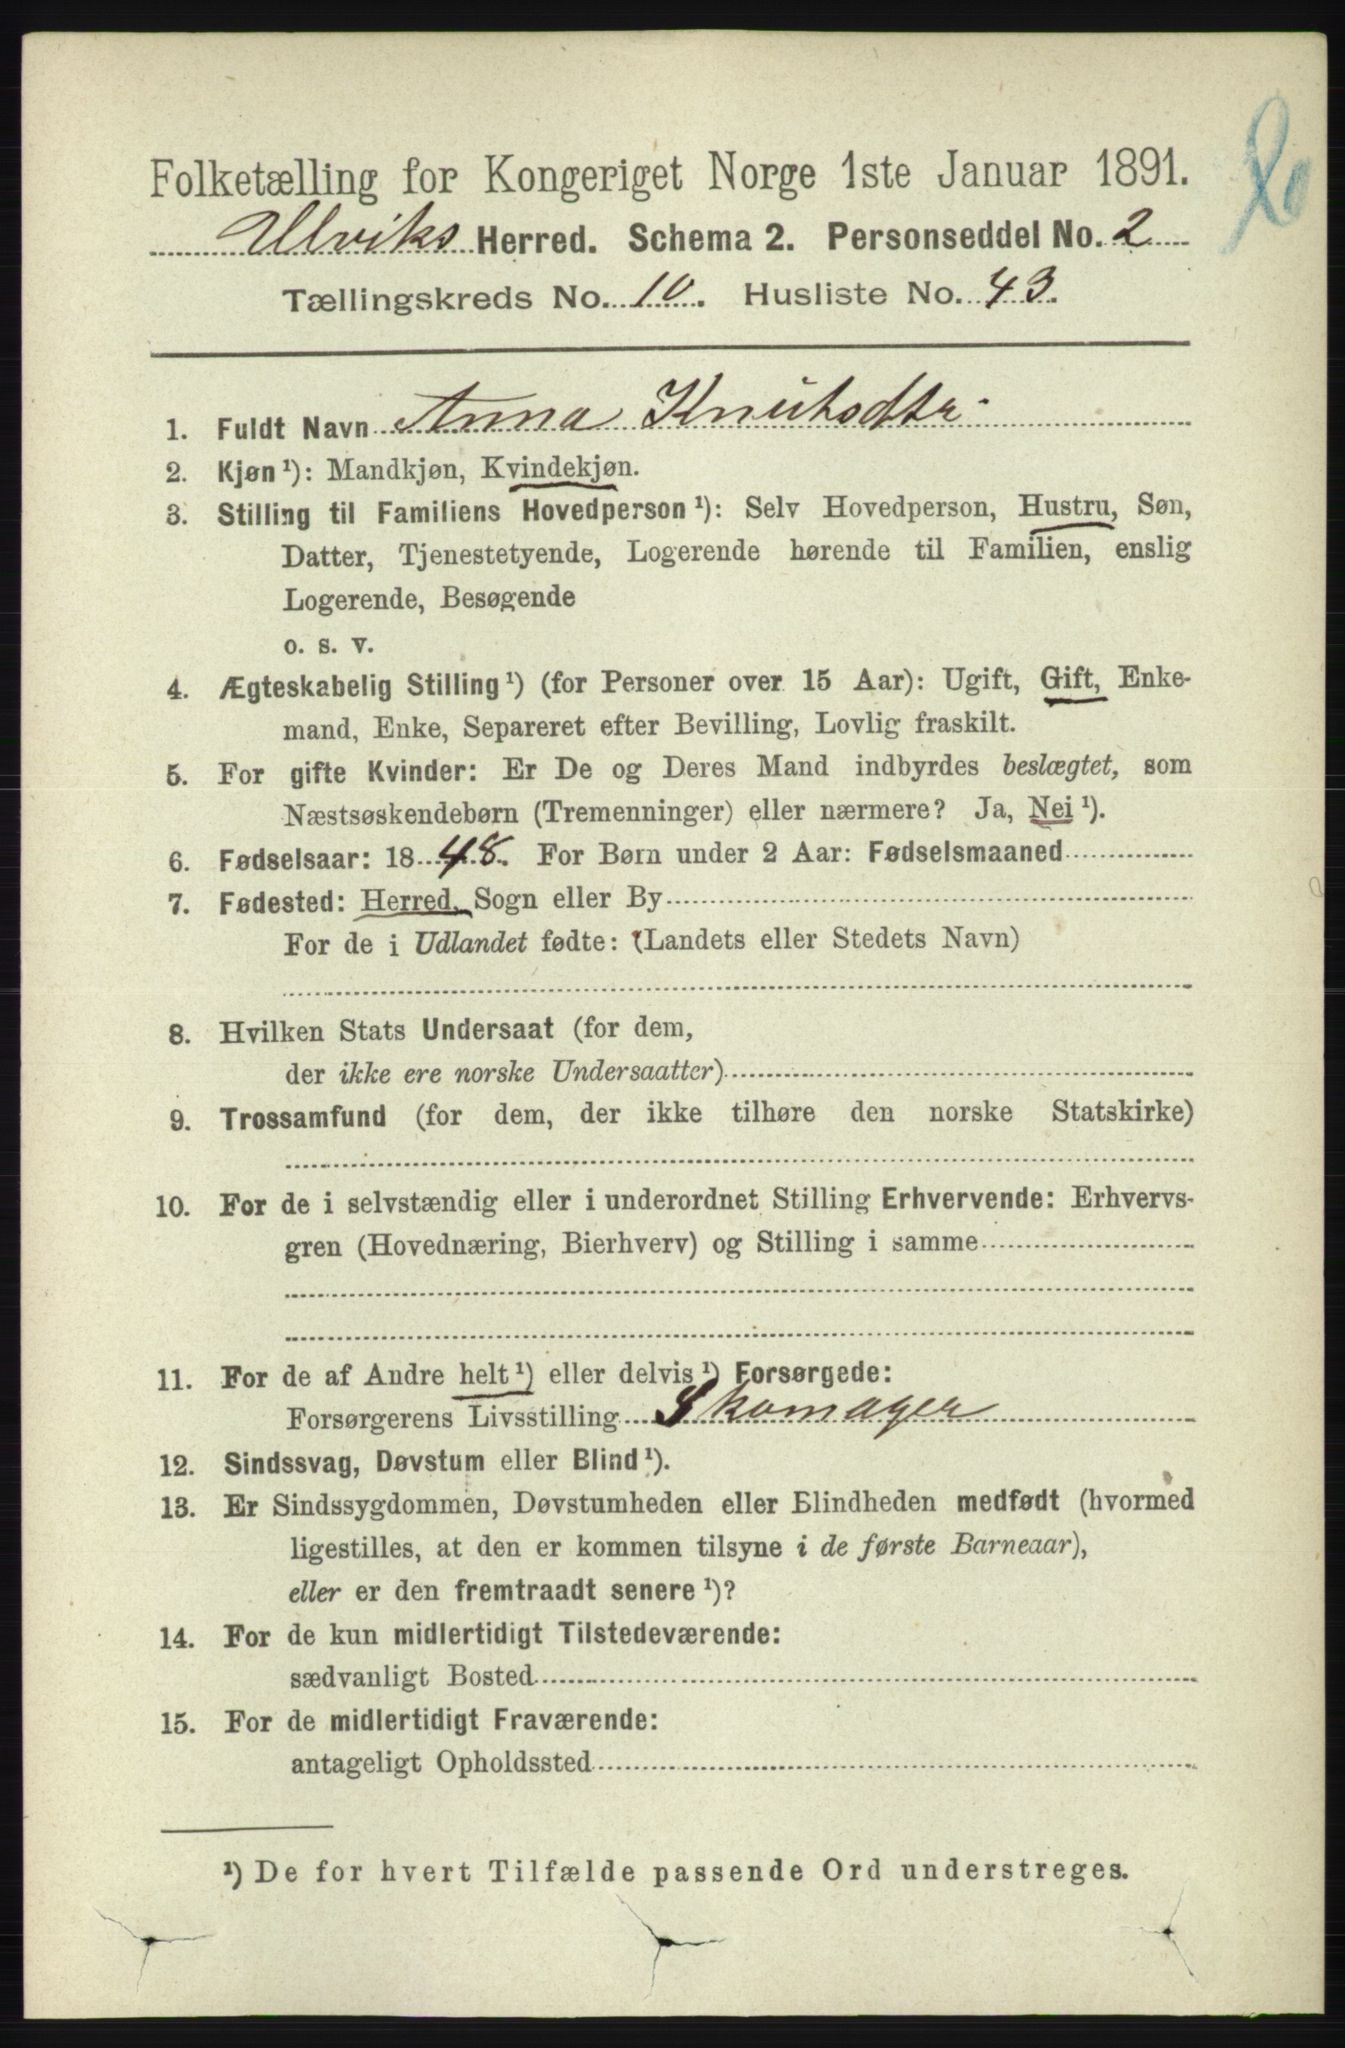 Folketælling for Kongeriget Norge 1ste Januar 1891.
Ulviks Herred. Schema 2. Personseddel No. 2
Tællingskreds No. 10. Husliste No. 43.
1. Fuldt Navn Anna Knutsdtr.
2. Kjøn¹): Mandkjøn, Kvindekjøn.
3. Stilling til Familiens Hovedperson¹): Selv Hovedperson, Hustru, Søn,
Datter, Tjenestetyende, Logerende hørende til Familien, enslig
Logerende, Besøgende
o. s. v.
4. Ægteskabelig Stilling¹) (for Personer over 15 Aar): Ugift, Gift, Enke-
mand, Enke, Separeret efter Bevilling, Lovlig fraskilt.
5. For gifte Kvinder: Er De og Deres Mand indbyrdes beslægtet, som
Næstsøskendebørn (Tremenninger) eller nærmere? Ja, Nei¹).
6. Fødselsaar: 1848. For Børn under 2 Aar: Fødselsmaaned
7. Fødested: Herred, Sogn eller By
For de i Udlandet fødte: (Landets eller Stedets Navn)
8. Hvilken Stats Undersaat (for dem,
der ikke ere norske Undersaatter)
9. Trossamfund (for dem, der ikke tilhøre den norske Statskirke)
10. For de i selvstændig eller i underordnet Stilling Erhvervende: Erhvervs-
gren (Hovednæring, Bierhverv) og Stilling i samme
11. For de af Andre helt¹) eller delvis¹) Forsørgede:
Forsørgerens Livsstilling Skomager
12. Sindssvag, Døvstum eller Blind¹).
13. Er Sindssygdommen, Døvstumheden eller Blindheden medfødt (hvormed
ligestilles, at den er kommen tilsyne i de første Barneaar),
eller er den fremtraadt senere¹)?
14. For de kun midlertidigt Tilstedeværende:
sædvanligt Bosted
15. For de midlertidigt Fraværende:
antageligt Opholdssted
¹) De for hvert Tilfælde passende Ord understreges.